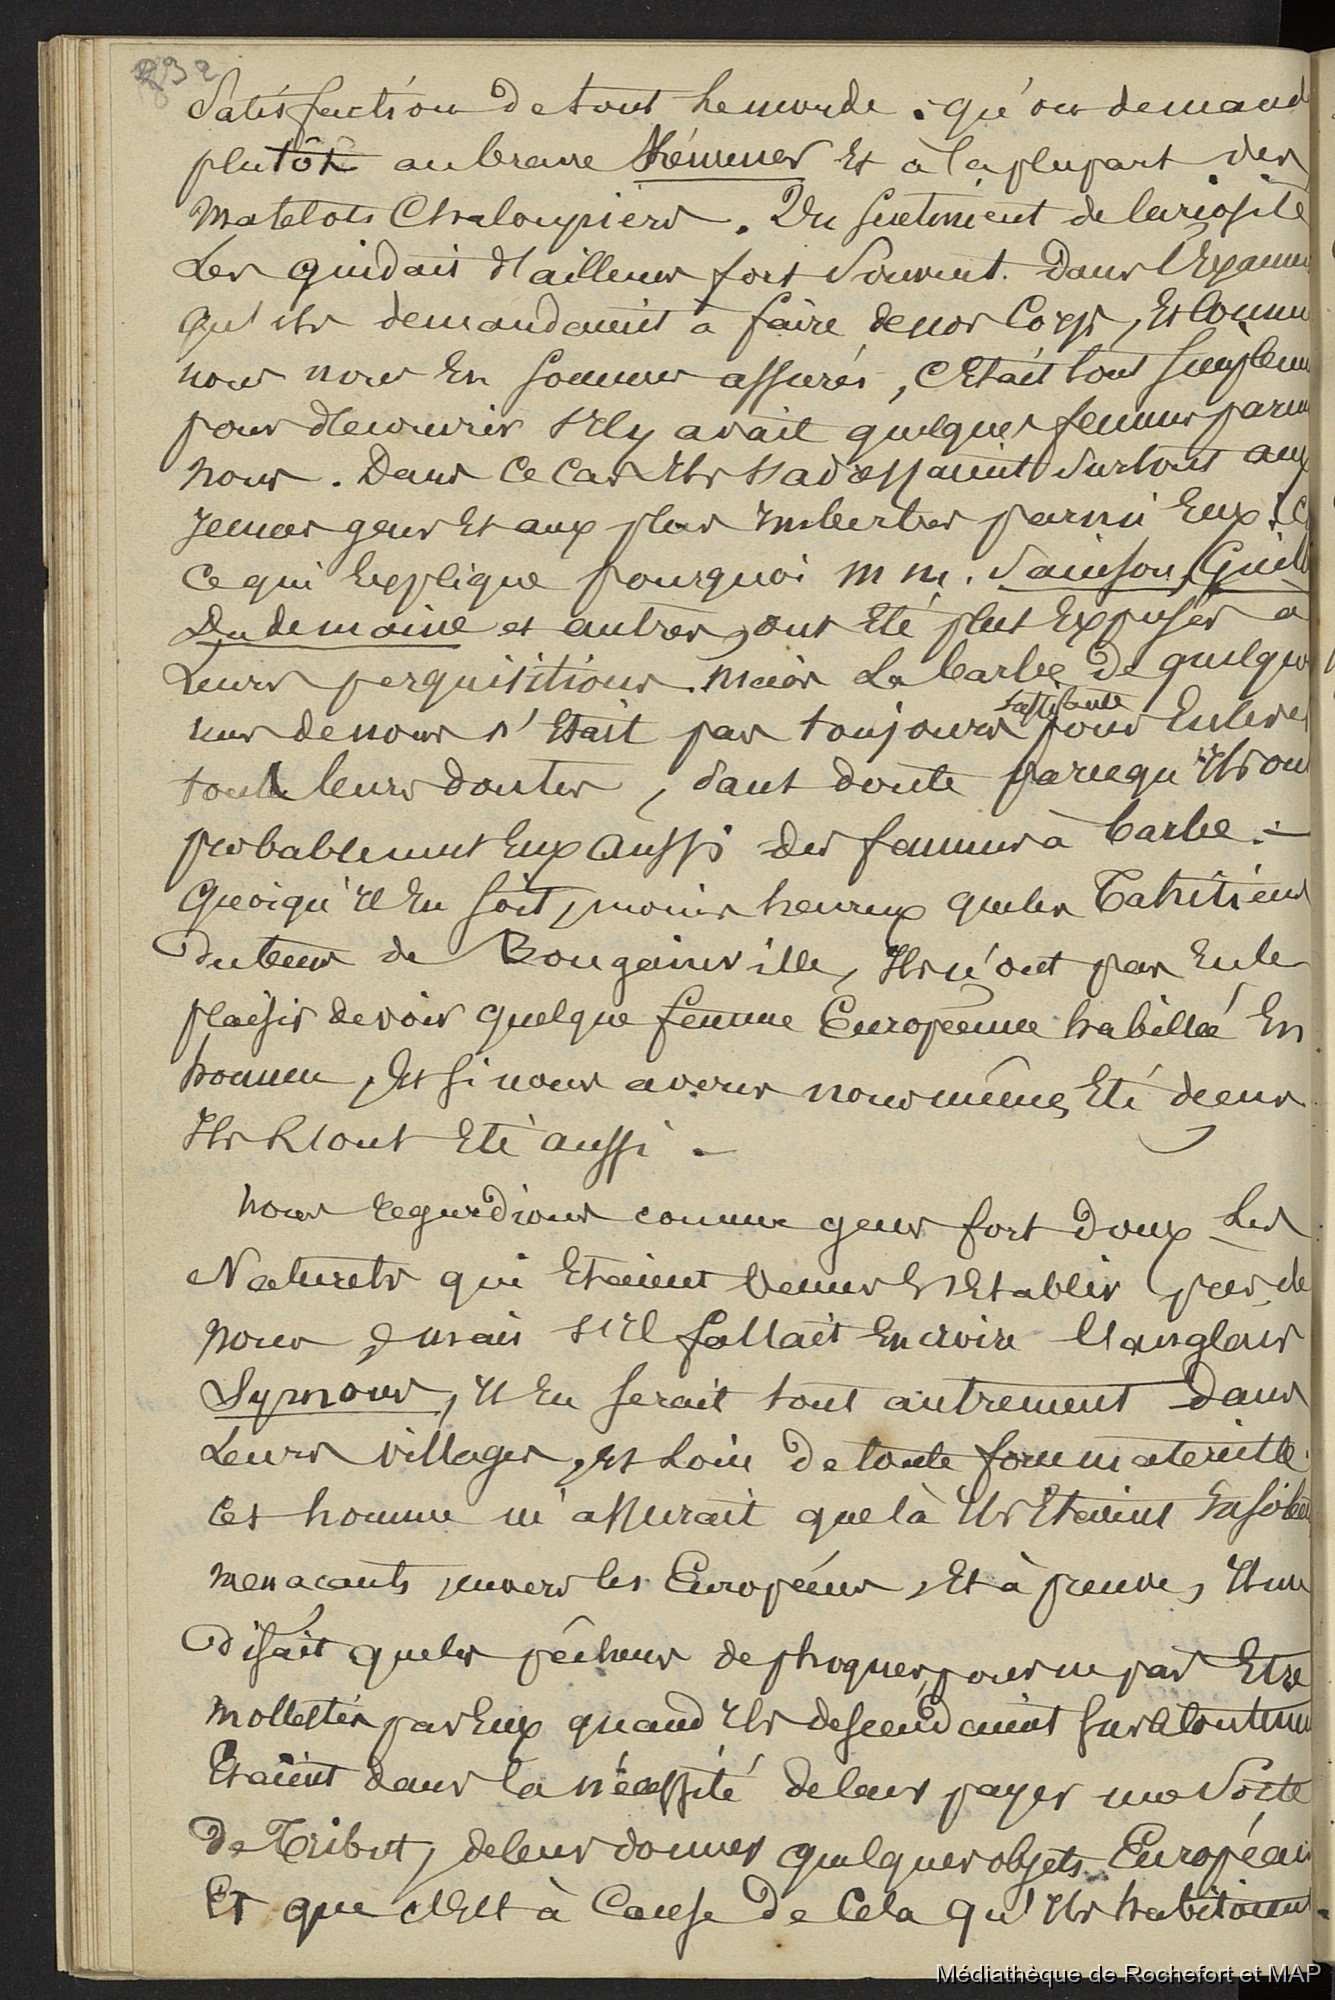 832
Satisfaction de tout le monde. qu'on demand
plutôt au brave Kéminer Et à la plupart des
Matelots Chaloupiers. Un Sentiment de Curiosité
Les guidait d'ailleurs fort Souvent. Dans l'Examen
qu'ils demandaient à faire de nos Corps, Et Comme
nous nous En Sommes assurés, C'Etait tout Simplem
pour découvrir s'Il y avait quelques femmes parmi
nous. Dans Ce Cas Ils s'adressaient Surtout aux
jeunes gens Et aux plus Imberbes parmi Eux. C
Ce qui Explique pourquoi m m. Sainson, Guilb
Dudemaine et autres, ont Eté plus Exposés a
Leurs perquisitions. Mais La barbe de quelques
uns de nous n'Etait pas toujours pour Enlever
Suffisante
tout leurs doutes, Sans doute parcequ'Ils on
probablement Eux aussi des femmes à barbe. —
Quoiqu'Il En Soit, moins heureux que les Tahitiens
du tems de Bougainville, Ils n'ont pas Eu le
plaisir de voir quelque femme Européenne habillée En
homme, Et Si nous avons nous mêmes Eté deçus
Ils l'ont Eté aussi. —
Nous regardions comme gens fort doux Les
Naturels qui Etaient Venus s'Etablir près de
nous, mais s'Il fallait En croire l'anglais
Symons, Il En Serait tout autrement Dans
Leurs villages, Et Loin de toute
Cet homme m'assurait que là Ils Etaient
menacants envers les Européens, Et à preuve, Il me
Disait que les pêcheurs de phoques, pour ne pas Etre
mollestés par Eux quand Ils descendaient Sur
Etaient dans la nécessité de leur payer une Sorte
De Tribut, de leur donner quelques objets Européen
Et que c'Est à Cause de Cela qu'Ils habitaient
Médiathèque de Rochefort et MAP